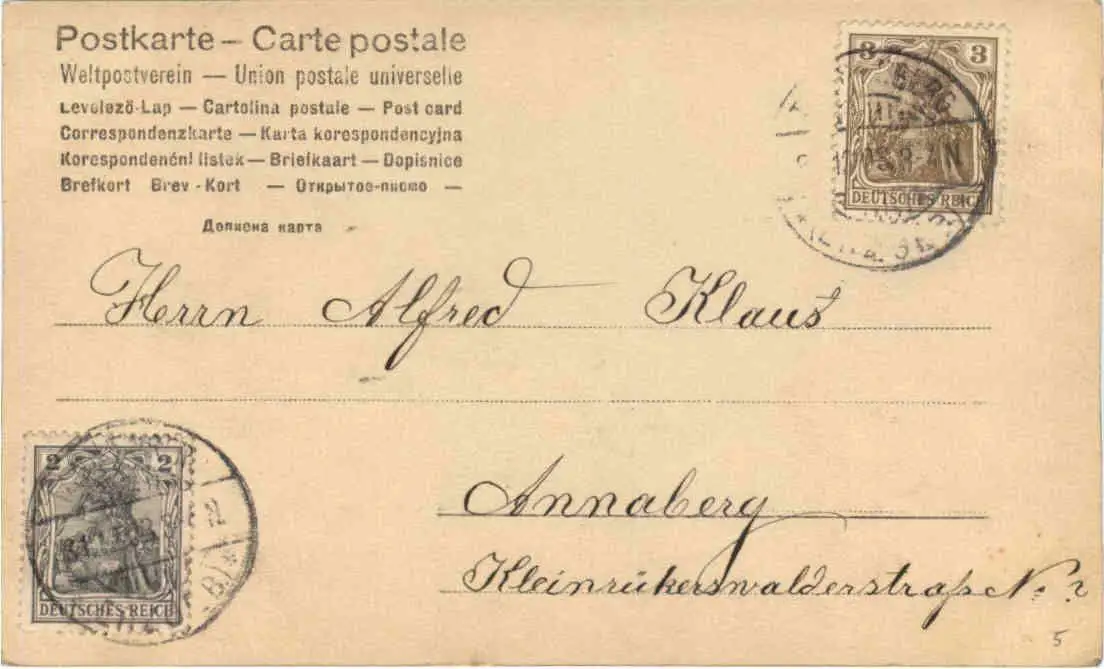 Postkarte – Carte postale
Weltpostverein — Union postale universelle
Levelező-Lap — Cartolina postale — Post card
Correspondenzkarte — Karta korespondencyjna
Korespondenční lístek — Briefkaart — Dopisnice
Brefkort Brev-Kort — Открытое-писмо —
Дописна карта
3 3
BERG
DEUTSCHES REICH
Herrn Alfred Klaus
Annaberg
Kleinrükerswalderstraße N. ?
2 2
DEUTSCHES REICH
5